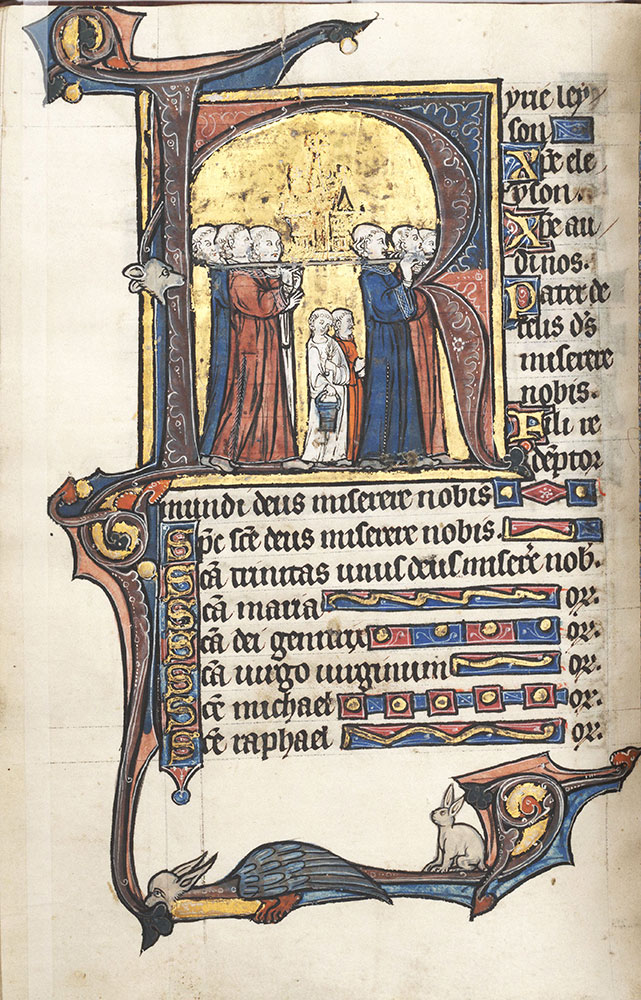 Kyrie ley
son
Xp̄e ele
yson.
Xp̄e au
di nos.
Pater de
celis d̄s
miserere
nobis.
Fili re
dēptor
mundi deus miserere nobis
Sp̄c sc̄e deus miserere nobis.
Sc̄a trinitas unus deus miserē nob̄.
Sc̄a maria or.
Sc̄a dei genitrix or.
Sc̄a uirgo uirginum or.
Sc̄e michael or.
Sc̄e raphael or.